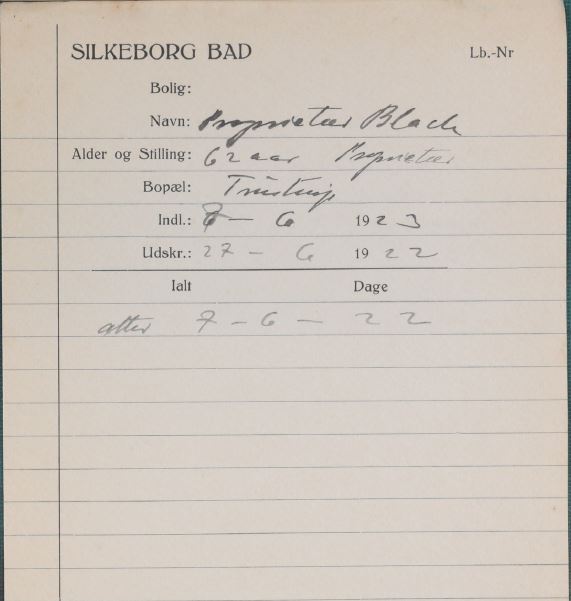 SILKEBORG BAD Lb.-Nr
Bolig:
Navn: Proprietær Black
Alder og Stilling: 62 aar Proprietær
Bopæl: Trustrup
Indl.: 7 - 6 1923
Udskr.: 27 - 6 1922
Ialt Dage
atter 7 - 6 - 22